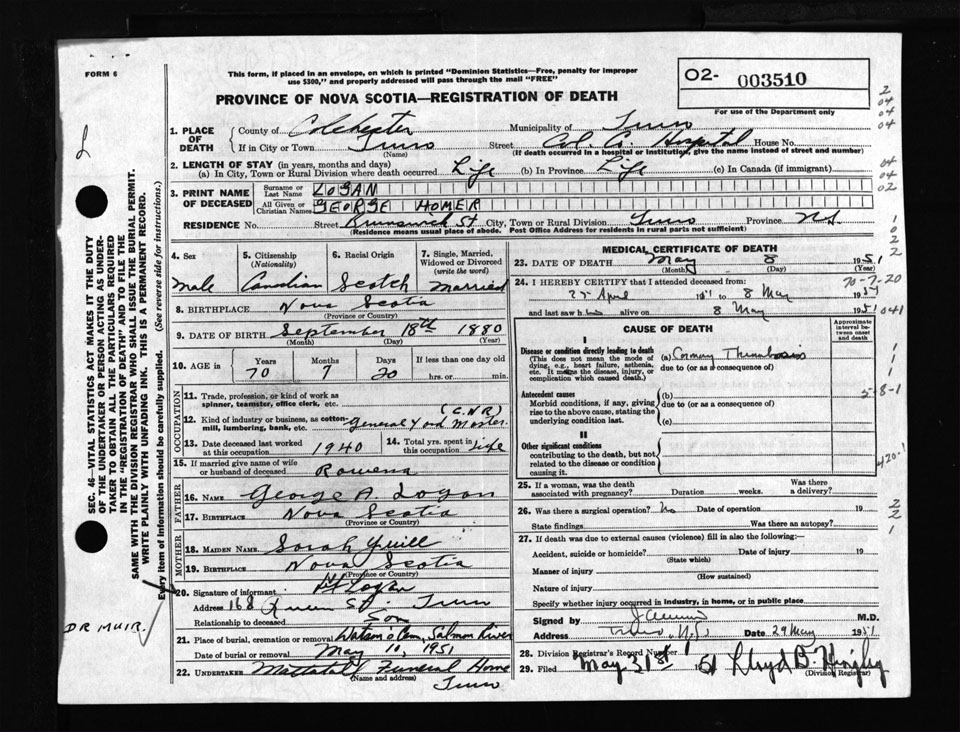 FORM 6
This form, if placed in an envelope, on which is printed "Dominion Statistics—Free, penalty for improper
use $300," and properly addressed will pass through the mail "FREE"
O2- 003510
For use of the Department only
PROVINCE OF NOVA SCOTIA—REGISTRATION OF DEATH
1. PLACE OF DEATH
County of Colchester Municipality of Truro
If in City or Town Truro Street Col. Co. Hospital House No.
(Name) (If death occurred in a hospital or institution, give the name instead of street and number)
2. LENGTH OF STAY (in years, months and days)
(a) In City, Town or Rural Division where death occurred Life (b) In Province Life (c) In Canada (if immigrant)
3. PRINT NAME OF DECEASED
Surname or Last Name LOGAN
All Given or Christian Names GEORGE HOMER
RESIDENCE No. Street Brunswick St City, Town or Rural Division Truro Province N.S.
(Residence means usual place of abode. Post Office Address for residents in rural parts not sufficient)
4. Sex
Male
5. Citizenship (Nationality)
Canadian
6. Racial Origin
Scotch
7. Single, Married, Widowed or Divorced (write the word)
Married
8. BIRTHPLACE Nova Scotia
(Province or Country)
9. DATE OF BIRTH September 18th 1880
(Month) (Day) (Year)
10. AGE in Years Months Days If less than one day old
70 7 20 hrs. or min.
OCCUPATION
11. Trade, profession, or kind of work as
spinner, teamster, office clerk, etc.
(C.N.R)
12. Kind of industry or business, as cotton-
mill, lumbering, bank, etc. General Yard Master
13. Date deceased last worked at this occupation 1940
14. Total yrs. spent in this occupation Life
15. If married give name of wife or husband of deceased Rowena
FATHER
16. NAME George A. Logan
17. BIRTHPLACE Nova Scotia
(Province or Country)
MOTHER
18. MAIDEN NAME Sarah Yuill
19. BIRTHPLACE Nova Scotia
(Province or Country)
20. Signature of informant Logan
Address 168 Queen St. Truro
Relationship to deceased Son
21. Place of burial, cremation or removal Cem, Salmon River
Date of burial or removal May 10, 1951
22. UNDERTAKER Mattatall Funeral Home
(Name and address) Truro
MEDICAL CERTIFICATE OF DEATH
23. DATE OF DEATH May 8 1951
(Month) (Day) (Year)
70-7-20
24. I HEREBY CERTIFY that I attended deceased from:
25 April 1951 to 8 May 1951
and last saw h im alive on 8 May 1951
041
CAUSE OF DEATH
Approximate interval between onset and death
I
Disease or condition directly leading to death
(This does not mean the mode of dying, e.g., heart failure, asthenia, etc. It means the disease, injury, or complication which caused death.)
(a) Coronary Thrombosis
due to (or as a consequence of)
Antecedent causes
Morbid conditions, if any, giving rise to the above cause, stating the underlying condition last.
(b)
due to (or as a consequence of)
(c)
5-8-1
II
Other significant conditions
contributing to the death, but not related to the disease or condition causing it.
420.1
25. If a woman, was the death associated with pregnancy? Duration weeks. Was there a delivery?
26. Was there a surgical operation? No Date of operation 19
State findings Was there an autopsy?
27. If death was due to external causes (violence) fill in also the following:—
Accident, suicide or homicide? Date of injury 19
(State which)
Manner of injury
(How sustained)
Nature of injury
Specify whether injury occurred in industry, in home, or in public place
Signed by M.D.
Address Truro, N.S. Date 29 May 1951
28. Division Registrar's Record Number
29. Filed May 31st 51 Lloyd B.
(Division Registrar)
SEC. 46—VITAL STATISTICS ACT MAKES IT THE DUTY
OF THE UNDERTAKER OR PERSON ACTING AS UNDER-
TAKER TO OBTAIN ALL THE PARTICULARS REQUIRED
IN THE "REGISTRATION OF DEATH" AND TO FILE THE
SAME WITH THE DIVISION REGISTRAR WHO SHALL ISSUE THE BURIAL PERMIT.
WRITE PLAINLY WITH UNFADING INK. THIS IS A PERMANENT RECORD.
Every item of information should be carefully supplied. (See reverse side for instructions.)
DR MUIR.
2
04
04
04
04
04
02